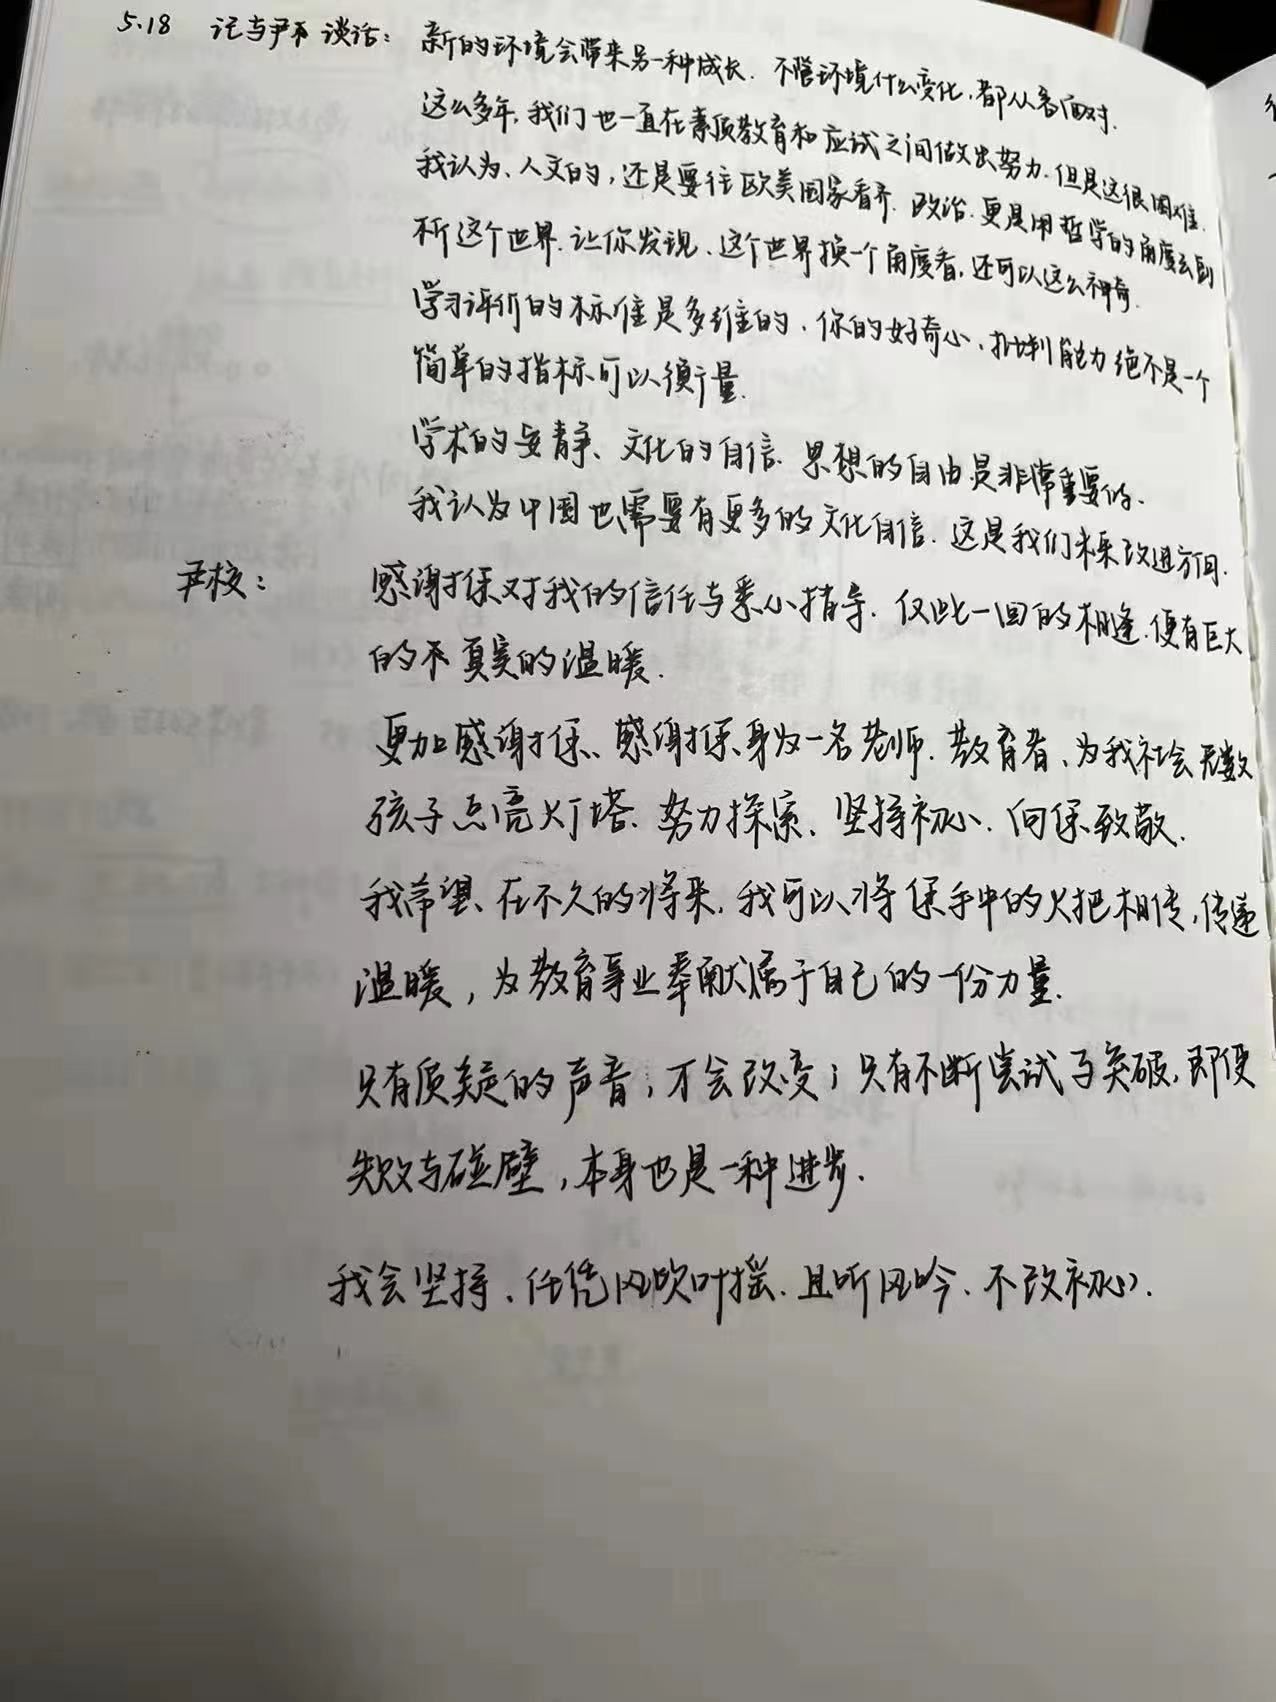 5.18 记与尹不谈话: 新的环境会带来另一种成长. 不管环境什么变化, 都从容面对.
这么多年, 我们也一直在素质教育和应试之间做出努力. 但是这很困难.
我认为、人文的, 还是要往欧美国家看齐. 政治. 更是用哲学的角度去剖
析这个世界. 让你发现、这个世界换一个角度看, 还可以这么神奇.
学习评价的标准是多维的、你的好奇心、批判能力绝不是一个
简单的指标可以衡量.
学术的安静、文化的自信. 思想的自由是非常重要的.
我认为中国也需要有更多的文化自信. 这是我们未来改进方向.
尹校: 感谢您对我的信任与悉心指导. 仅此一回的相逢. 便有巨大
的不真实的温暖.
更加感谢您、感谢您身为一名老师. 教育者、为我社会无数
孩子点亮灯塔. 努力探索、坚持初心、向您致敬.
我希望、在不久的将来, 我可以将您手中的火把相传, 传递
温暖, 为教育事业奉献属于自己的一份力量.
只有质疑的声音, 才会改变; 只有不断尝试与突破, 即便
失败与碰壁, 本身也是一种进步.
我会坚持、任凭风吹叶摇. 且听风吟、不改初心.